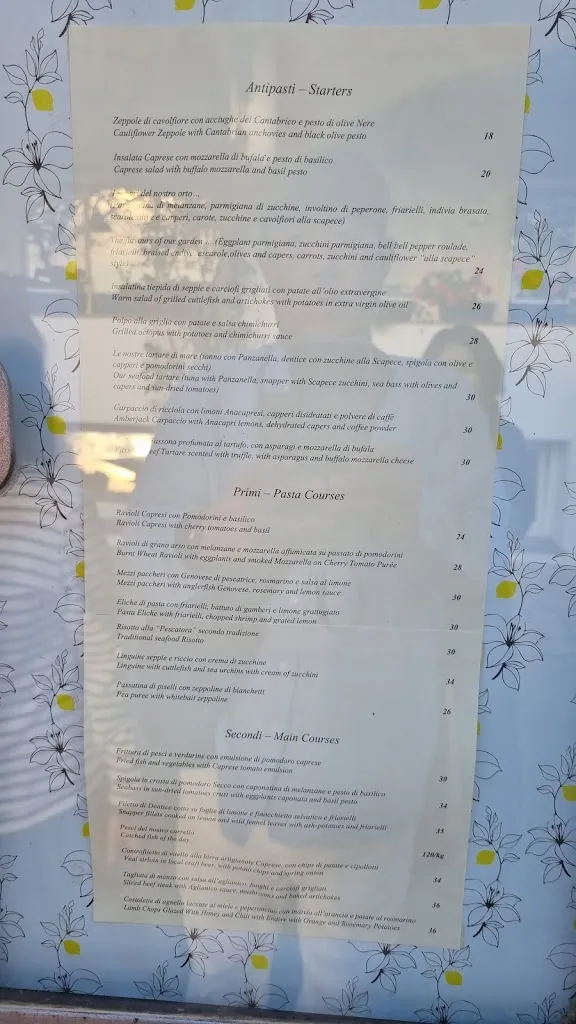 Antipasti – Starters
Zeppole di cavolfiore con acciughe del Cantabrico e pesto di olive Nere
Cauliflower Zeppole with Cantabrian anchovies and black olive pesto
18
Insalata Caprese con mozzarella di bufala e pesto di basilico
Caprese salad with buffalo mozzarella and basil pesto
20
del nostro orto...
di melanzane, parmigiana di zucchine, involtino di peperone, friarielli, indivia brasata,
e capperi, carote, zucchine e cavolfiori alla scapece)
The flavours of our garden ... (Eggplant parmigiana, zucchini parmigiana, bell bell pepper roulade,
friarielli, braised endive, escarole,olives and capers, carrots, zucchini and cauliflower "alla scapece"
style)
24
Insalatina tiepida di seppie e carciofi grigliati con patate all'olio extravergine
Warm salad of grilled cuttlefish and artichokes with potatoes in extra virgin olive oil
26
Polpo alla griglia con patate e salsa chimichurri
Grilled octopus with potatoes and chimichurri sauce
28
Le nostre tartare di mare (tonno con Panzanella, dentice con zucchine alla Scapece, spigola con olive e
capperi e pomodorini secchi)
Our seafood tartare (tuna with Panzanella, snapper with Scapece zucchini, sea bass with olives and
capers and sun-dried tomatoes)
30
Carpaccio di ricciola con limoni Anacapresi, capperi disidratati e polvere di caffè
Amberjack Carpaccio with Anacapri lemons, dehydrated capers and coffee powder
30
profumata al tartufo, con asparagi e mozzarella di bufala
Tartare scented with truffle, with asparagus and buffalo mozzarella cheese
30
Primi – Pasta Courses
Ravioli Capresi con Pomodorini e basilico
Ravioli Capresi with cherry tomatoes and basil
24
Ravioli di grano arso con melanzane e mozzarella affumicata su passato di pomodorini
Burnt Wheat Ravioli with eggplants and smoked Mozzarella on Cherry Tomato Purée
28
Mezzi paccheri con Genovese di pescatrice, rosmarino e salsa al limone
Mezzi paccheri with anglerfish Genovese, rosemary and lemon sauce
30
Eliche di pasta con friarielli, battuto di gamberi e limone grattugiato
Pasta Eliche with friarielli, chopped shrimp and grated lemon
30
Risotto alla "Pescatora" secondo tradizione
Traditional seafood Risotto
30
Linguine seppie e riccio con crema di zucchine
Linguine with cuttlefish and sea urchins with cream of zucchini
34
Passatina di piselli con zeppoline di bianchetti
Pea puree with whitebait zeppoline
26
Secondi – Main Courses
Frittura di pesci e verdurine con emulsione di pomodoro caprese
Fried fish and vegetables with Caprese tomato emulsion
30
Spigola in crosta di pomodoro Secco con caponatina di melanzane e pesto di basilico
Seabass in sun-dried tomatoes crust with eggplants caponata and basil pesto
34
Filetto di Dentice cotto su foglie di limone e finocchietto selvatico e friarielli
Snapper fillets cooked on lemon and wild fennel leaves with ash-potatoes and friarielli
35
Pesci del nostro carrello
Catched fish of the day
120/kg
Controfiletto di vitello alla birra artigianale Caprese, con chips di patate e cipollotti
Veal sirloin in local craft beer, with potato chips and spring onion
34
Tagliata di manzo con salsa all'aglianico, funghi e carciofi grigliati
Sliced beef steak with Aglianico sauce, mushrooms and baked artichokes
36
Costolette di agnello laccate al miele e peperoncino con indivia all'arancia e patate al rosmarino
Lamb Chops Glazed With Honey and Chili with Endive with Orange and Rosemary Potatoes
36